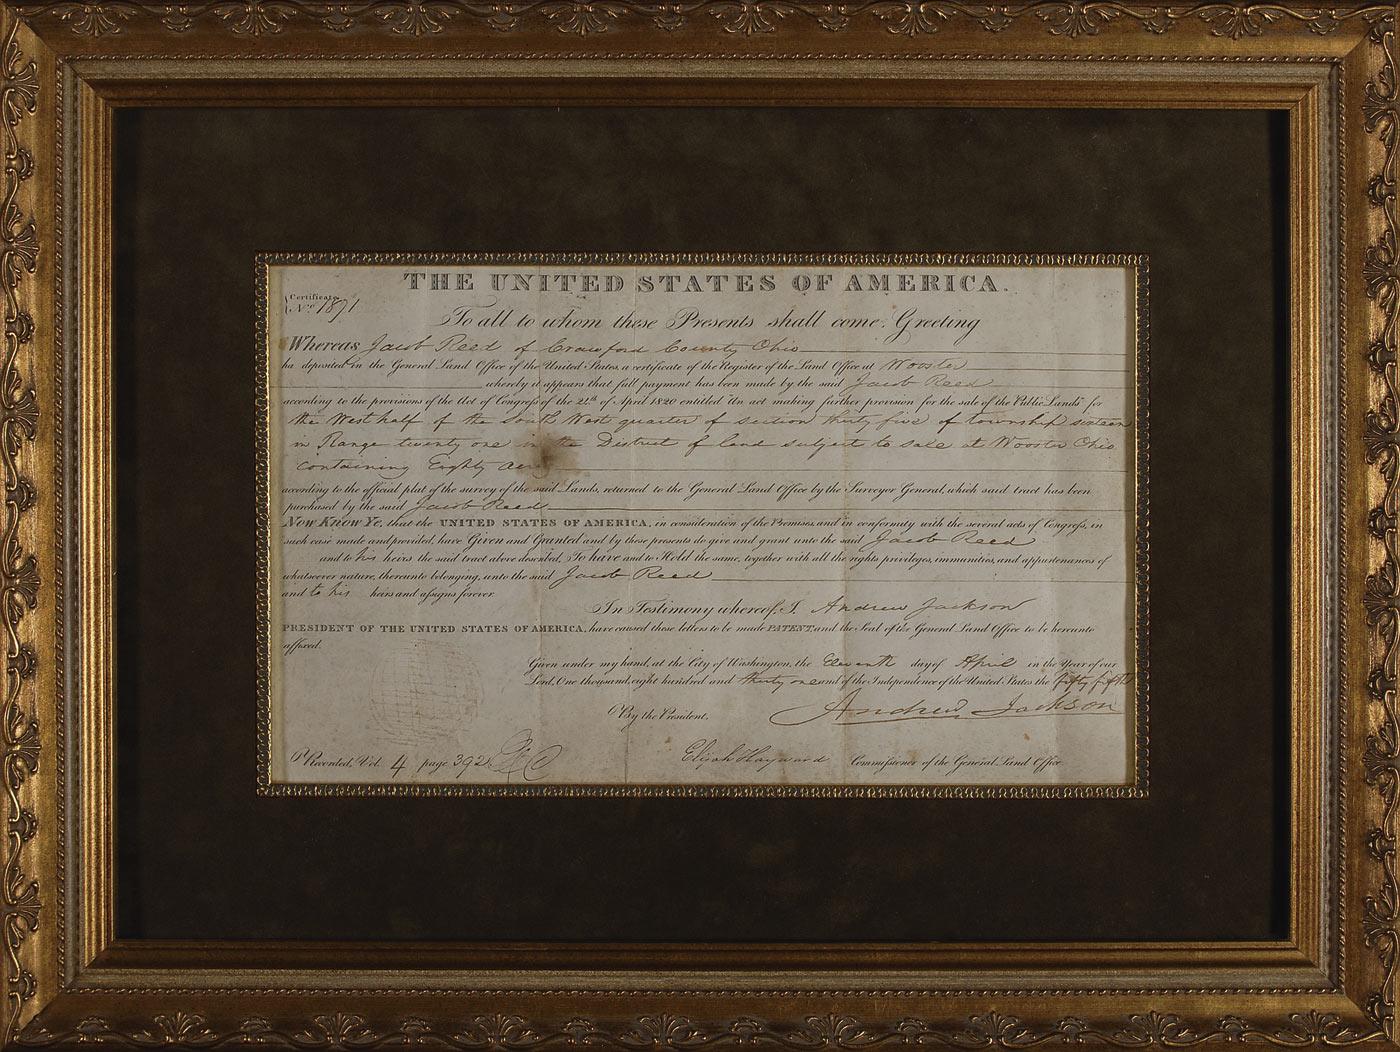 THE UNITED STATES OF AMERICA.
Certificate
No. 1871
To all to whom these Presents shall come, Greeting
Whereas Jacob Reed of Crawford County Ohio
ha deposited in the General Land Office of the United States, a certificate of the Register of the Land Office at Wooster
whereby it appears that full payment has been made by the said Jacob Reed
according to the provisions of the Act of Congress of the 24th of April 1820 entitled "An act making further provision for the sale of the Public Lands" for
the West half of the South West quarter of section thirty five of township sixteen
in Range twenty one in the District of land subject to sale at Wooster Ohio
containing Eighty acres
according to the official plat of the survey of the said Lands, returned to the General Land Office by the Surveyor General, which said tract has been
purchased by the said Jacob Reed
Now Know Ye, that the UNITED STATES OF AMERICA, in consideration of the Premises, and in conformity with the several acts of Congress, in
such case made and provided, have Given and Granted and by these presents do give and grant unto the said Jacob Reed
and to his heirs the said tract above described, To have and to Hold the same, together with all the rights privileges, immunities, and appurtenances of
whatsoever nature, thereunto belonging, unto the said Jacob Reed
and to his heirs and assigns forever.
In Testimony whereof, I, Andrew Jackson
PRESIDENT OF THE UNITED STATES OF AMERICA, have caused these letters to be made PATENT, and the Seal of the General Land Office to be hereunto
affixed.
Given under my hand, at the City of Washington, the Eleventh day of April in the Year of our
Lord, One thousand, eight hundred and thirty one and of the Independence of the United States the fifty fifth
Andrew Jackson
By the President,
Elijah Hayward Commissioner of the General Land Office
Recorded, Vol. 4 page 392